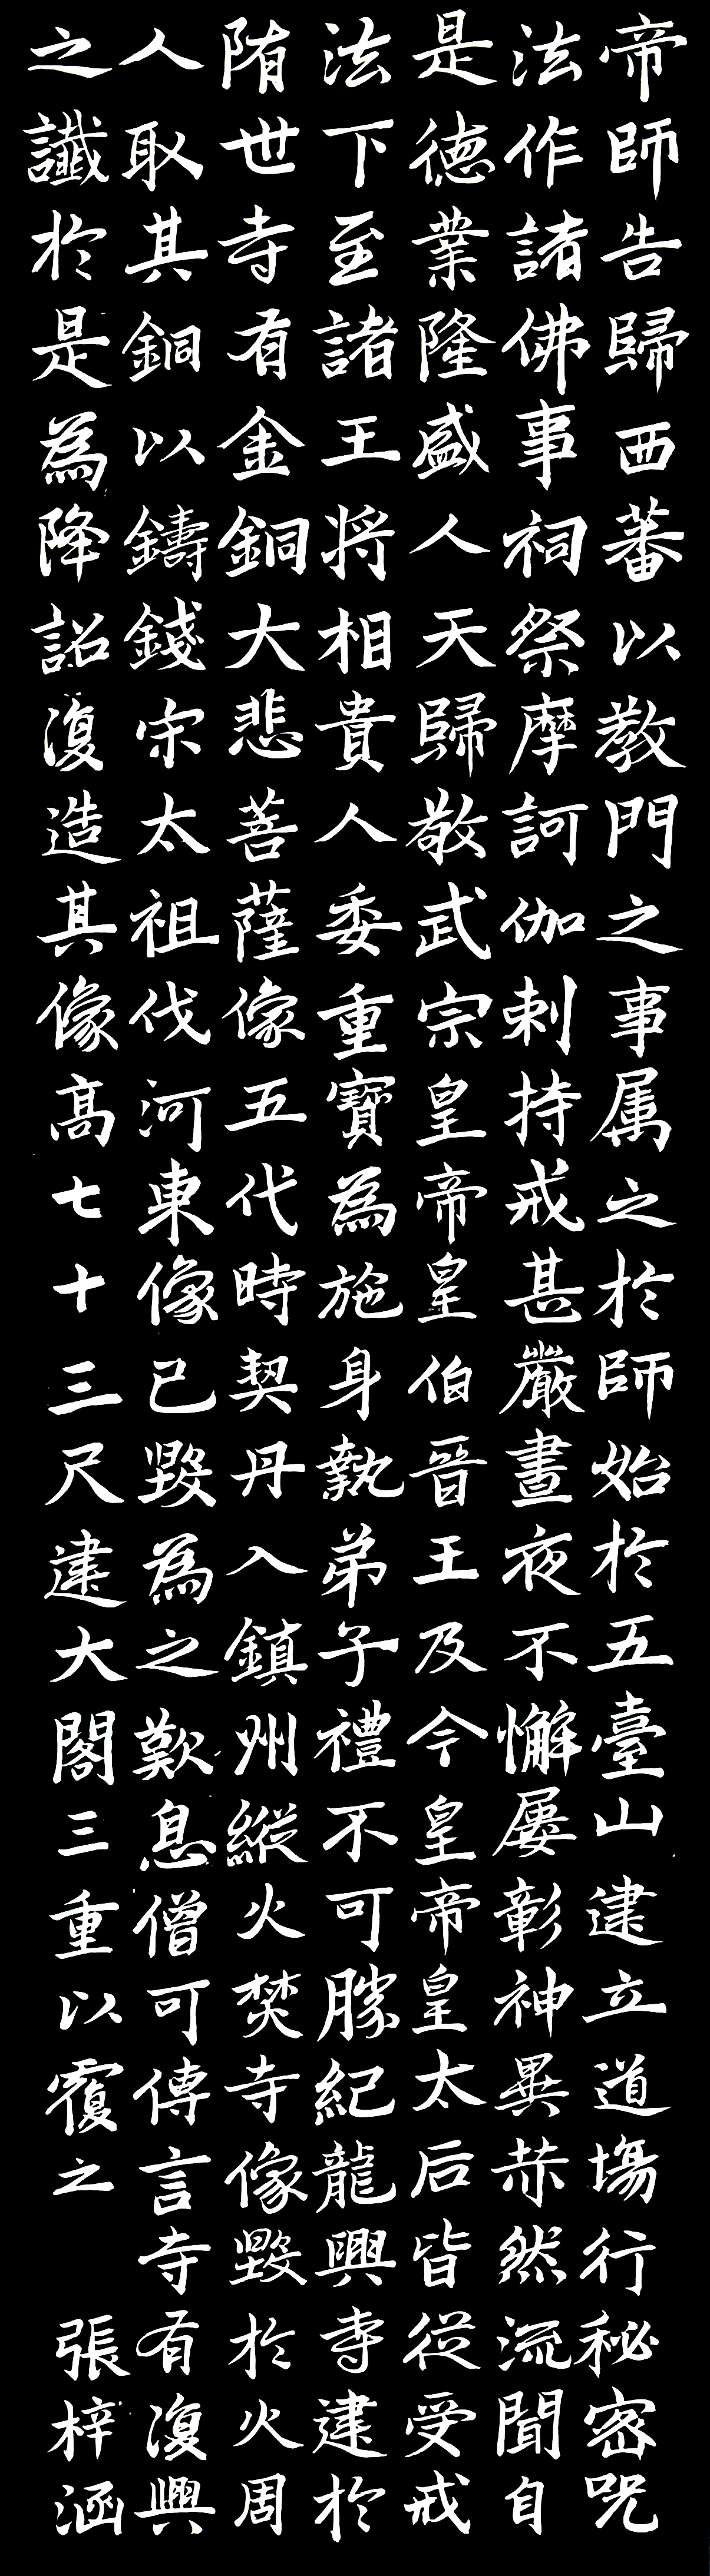 帝師告歸西蕃以教門之事属之於師始於五臺山建立道場行秘密咒
法作諸佛事祠祭摩訶伽剌持戒甚嚴晝夜不懈屢彰神異赫然流聞自
是德業隆盛人天歸敬武宗皇帝皇伯晉王及今皇帝皇太后皆從受戒
法下至諸王將相貴人委重寶為施身執弟子禮不可勝紀龍興寺建於
隋世寺有金銅大悲菩薩像五代時契丹入鎮州縱火焚寺像毀於火周
人取其銅以鑄錢宋太祖伐河東像已毀為之歎息僧可傳言寺有復興
之讖於是為降詔復造其像高七十三尺建大閣三重以覆之 張梓涵